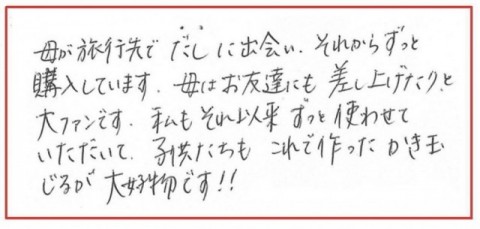 母が旅行先で だし に出会い、それからずっと
購入しています。母はお友達にも 差し上げたり、と
大ファンです。私もそれ以来 ずっと 使わせて
いただいて、子供たちも これで作った かき玉
じるが 大好物です!!